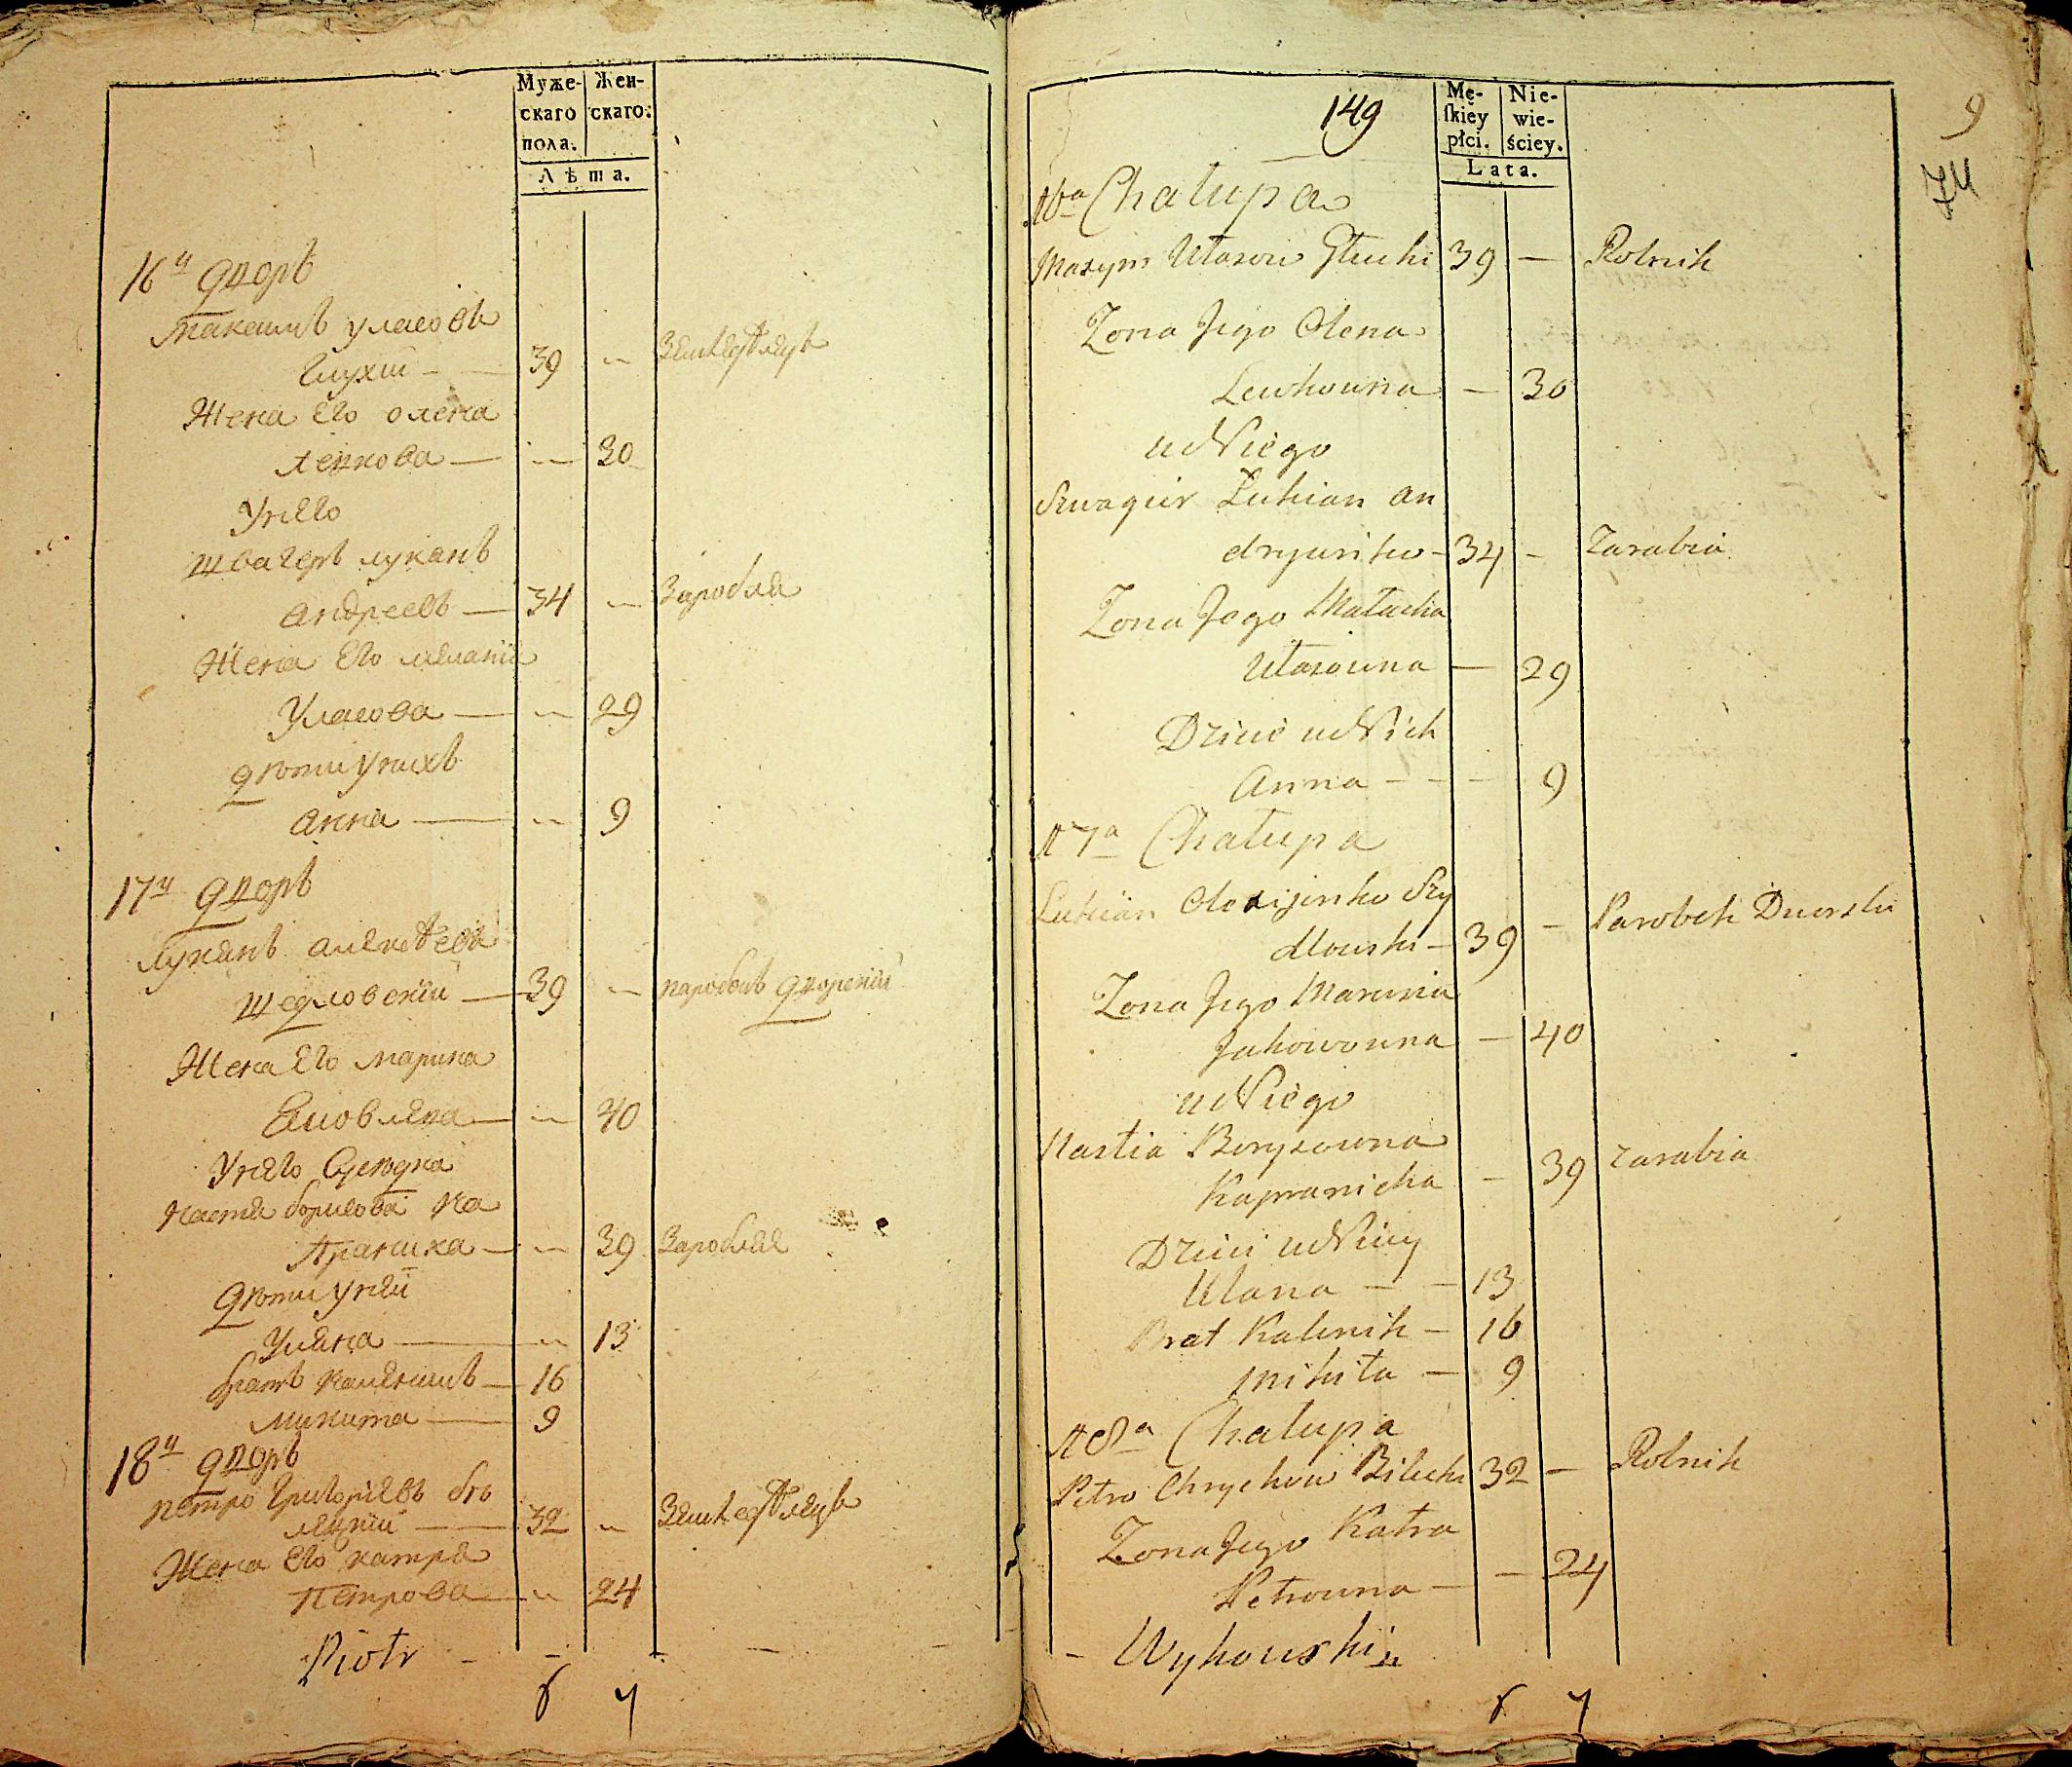 Муже-
скаго
пола.
Жен-
скаго.
Лѣта.
16й дворъ
Максимъ Уласовъ
Глухій — 39 — Землеѣделецъ
Жена Его Олена
Левкова — — 30
У него
Швагеръ Лукянъ
Андреевъ — 34 — Заробля
Жена Его Меланія
Уласова — — 29
Дѣти у нихъ
Анна — — 9
17й дворъ
Лукянъ Алексѣевъ
Шедловскій — 39 — паробокъ дворскій
Жена Его Марина
Яковлева — — 40
У него
Настя Борисова Ка
праниха — — 39 Заробляе
Дѣти у ней
Уляна — — 13
братъ Каленикъ — 16
Микита — 9
18й дворъ
Петро Григоріевъ бѣ
лецкій — 32 — Землеѣделецъ
Жена Его Катря
Петрова — — 24
Piotr - - - —
6 7
149
9
74
Mę-
ſkiey
płci.
Nie-
wie-
ściey.
Lata.
16a Chałupa
Maxym Ułasow Głuchi 39 — Rolnik
Zona Jego Olena
Lewkowna — 30
u Niego
Szwagier Łukian An
dryienko — 34 — Zarabia
Zona Jego Małachia
Ułasowna — 29
Dzieci u Nich
Anna — — — 9
17a Chałupa
Łukian Olexijenko Szy
dłowski — 39 — Parobek Dworski
Zona Jego Maryna
Jakowowna — 40
u Niego
Nastia Borysowna
Kapranicha — 39 Zarabia
Dzieci u Niey
Ulana — — 13
Brat Kalenik — 16
Mikita — 9
18a Chałupa
Petro Chryhow Bilecki 32 — Rolnik
Zona Jego Katra
Petrowna — — 24
- Wyhowski
6 7